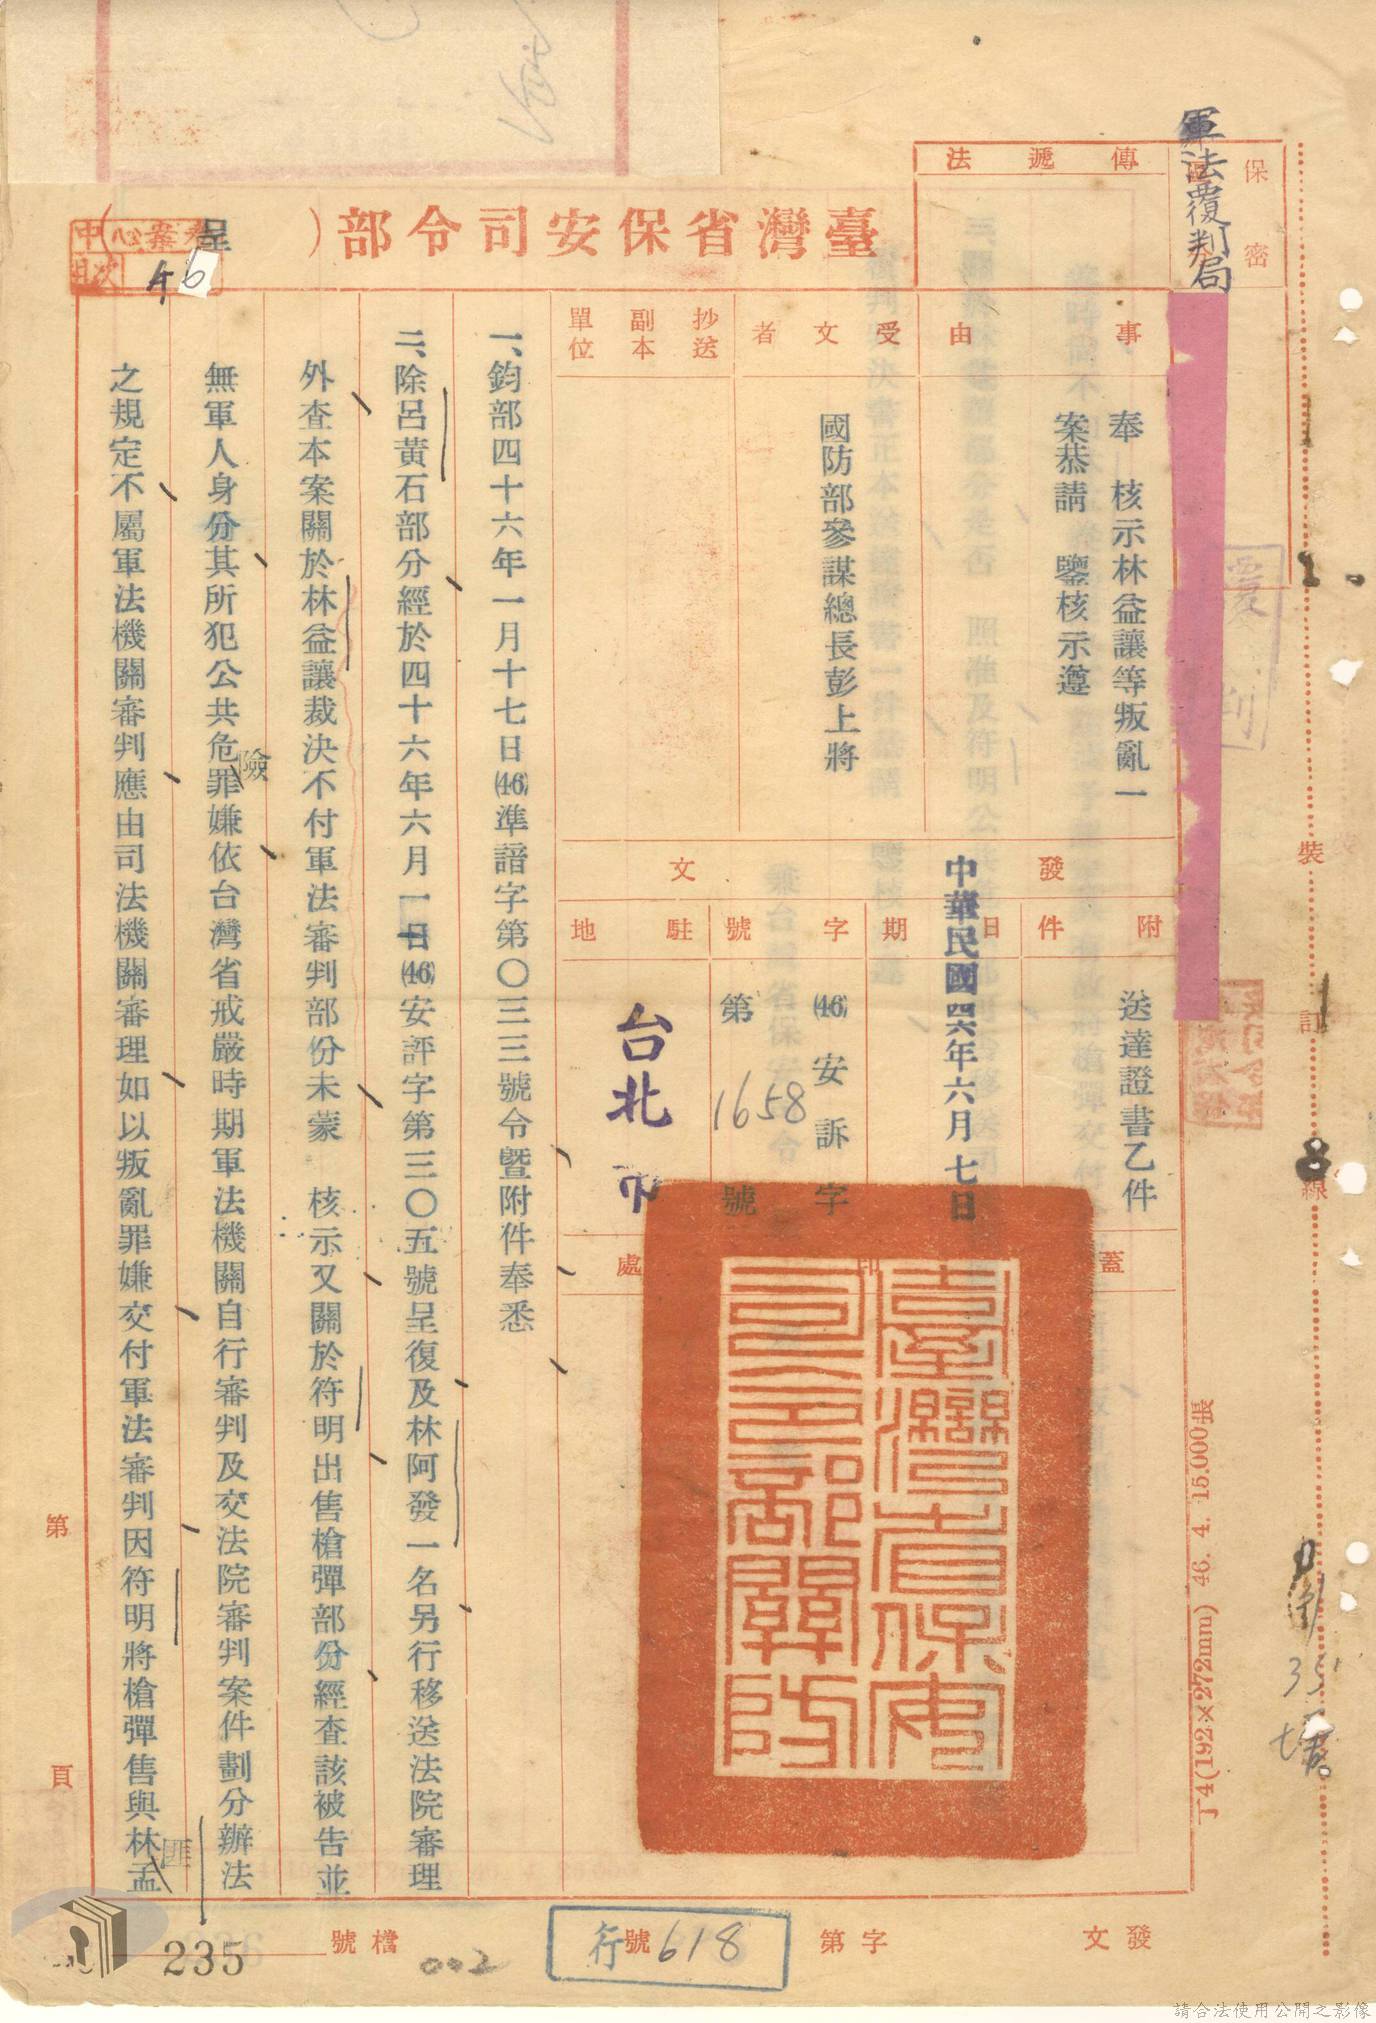 軍法覆判局
保密
傳遞法
臺灣省保安司令部(呈)
46
事由
奉 核示林益讓等叛亂一
案恭請 鑒核示遵
受文者
國防部參謀總長彭上將
抄送副本單位
發文
附件
送達證書乙件
日期
中華民國四六年六月七日
字號
(46)安訴字
第1658號
駐地
台北市
蓋印處
臺灣省保安
司令部關防
一、鈞部四十六年一月十七日(46)準諳字第〇三三號令暨附件奉悉
二、除呂黃石部分經於四十六年六月一日(46)安評字第三〇五號呈復及林阿發一名另行移送法院審理
外查本案關於林益讓裁決不付軍法審判部份未蒙 核示又關於符明出售槍彈部份經查該被告並
無軍人身分其所犯公共危險罪嫌依台灣省戒嚴時期軍法機關自行審判及交法院審判案件劃分辦法
之規定不屬軍法機關審判應由司法機關審理如以叛亂罪嫌交付軍法審判因符明將槍彈售與林匪孟
裝
訂
線
丁4(192×272mm) 46. 4. 15.000張
35
第
頁
發文
字第618號
行
002
檔號
235
請合法使用公開之影像